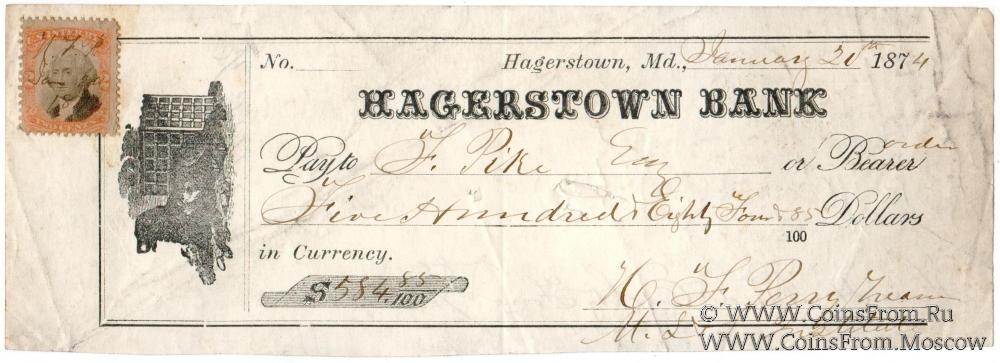 No. Hagerstown, Md., January 20th 1874
HAGERSTOWN BANK
Pay to F. Pike Esq or Bearer order
Five Hundred & Eighty Four & 85 Dollars
100
in Currency.
$ 584.85/100
H. F. Perry Treas
M. L
© WWW.CoinsFrom.Ru
WWW.CoinsFrom.Moscow